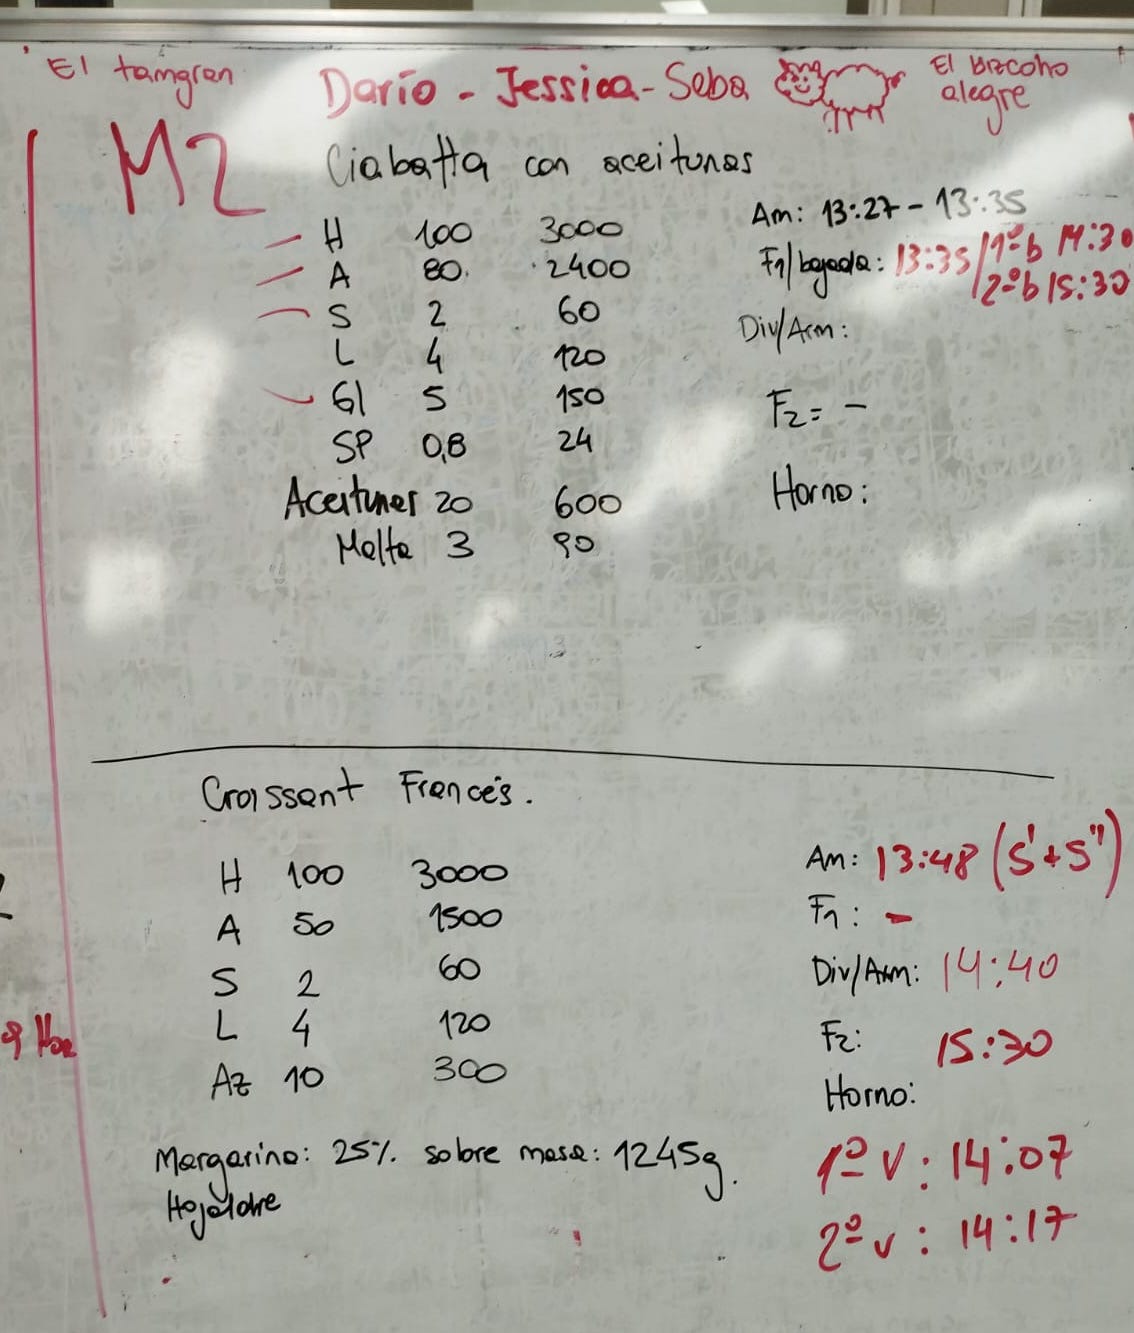 El tamgran
Darío - Jessica - Seba
El Bizcoho
alegre
M2
Ciabatta con aceitunas
H 100 3000
A 80 2400
S 2 60
L 4 120
Gl 5 150
SP 0,8 24
Aceitunes 20 600
Malta 3 90
Am: 13:27 - 13:35
F1/bajada: 13:35 / 1ºb 14:30
2ºb 15:30
Div/Arm:
F2 = -
Horno:
Croissant Francés.
H 100 3000
A 50 1500
S 2 60
L 4 120
Az 10 300
Margarina: 25% sobre masa: 1245g.
Hojaldre
Am: 13:48 (5'+5")
F1: -
Div/Arm: 14:40
F2: 15:30
Horno:
1º v: 14:07
2º v: 14:17